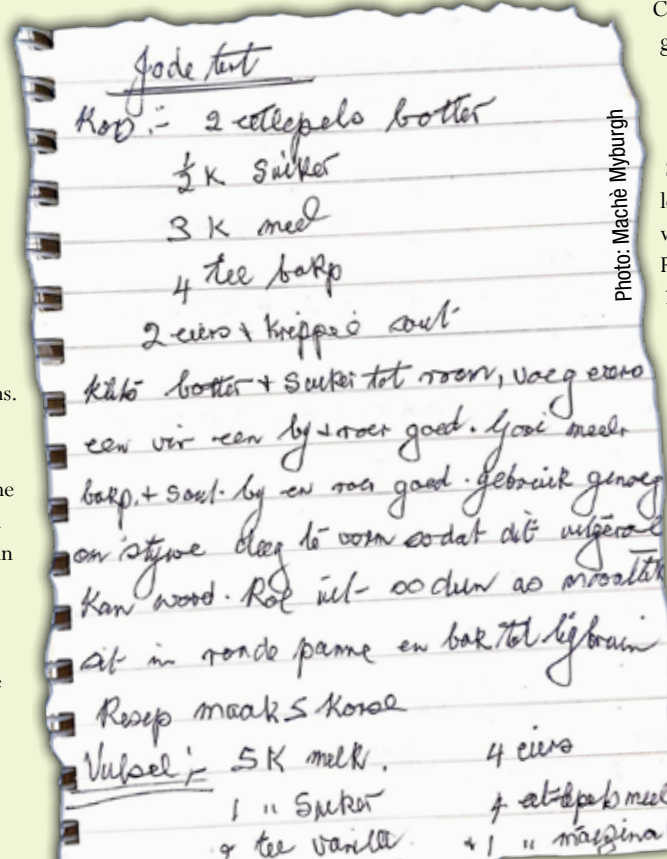 Jode tert
Kop :- 2 eetlepels botter
½ K Suiker
3 K meel
4 tee bakp
2 eiers + knippie sout
Klits botter + Suiker tot room, voeg eiers
een vir een by + roer goed. Gooi meel,
bakp. + sout. by en roer goed. gebruik genoeg
om stywe deeg te vorm sodat dit uitgerol
kan word. Rol uit so dun as moontlik
sit in ronde panne en bak tot ligbruin
Resep maak 5 korse
Vulsel :- 5 K melk. 4 eiers
1 " Suiker 4 eetlepels meel
2 tee vanilla + 1 " margina
Photo: Machè Myburgh
C
g
ns.
ne
in